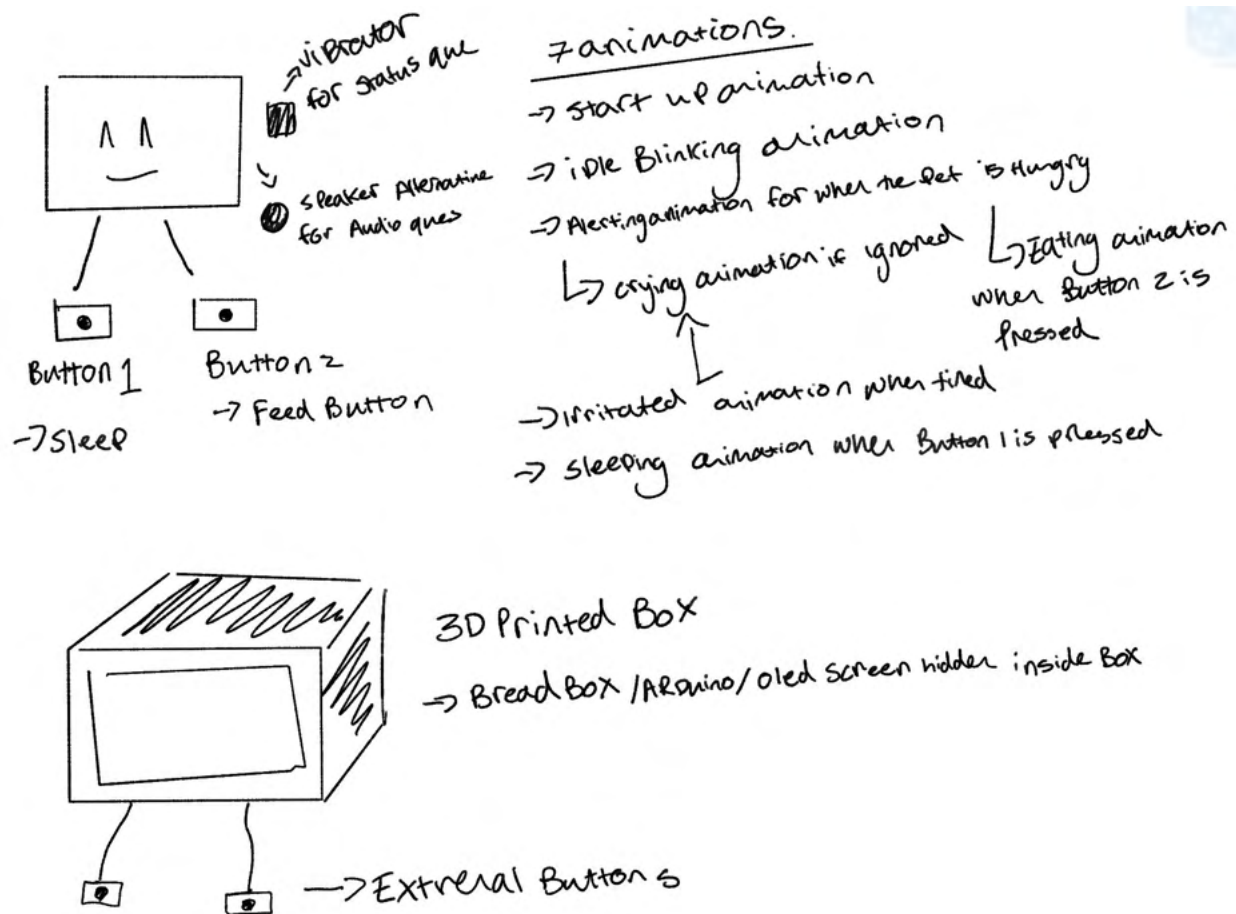 → viBrator
for status que
speaker Alternative
for Audio ques
Button 1
→ Sleep
Button 2
→ Feed Button
7 animations.
→ start up animation
→ iDle Blinking animation
→ Alerting animation for when the Pet is Hungry
↳ crying animation if ignored
↳ Eating animation
when Button 2 is
Pressed
→ irritated animation when tired
→ sleeping animation when Button 1 is pressed
3D Printed Box
→ BreadBox / ARDuino / Oled Screen hidden inside Box
→ Extreral Buttons